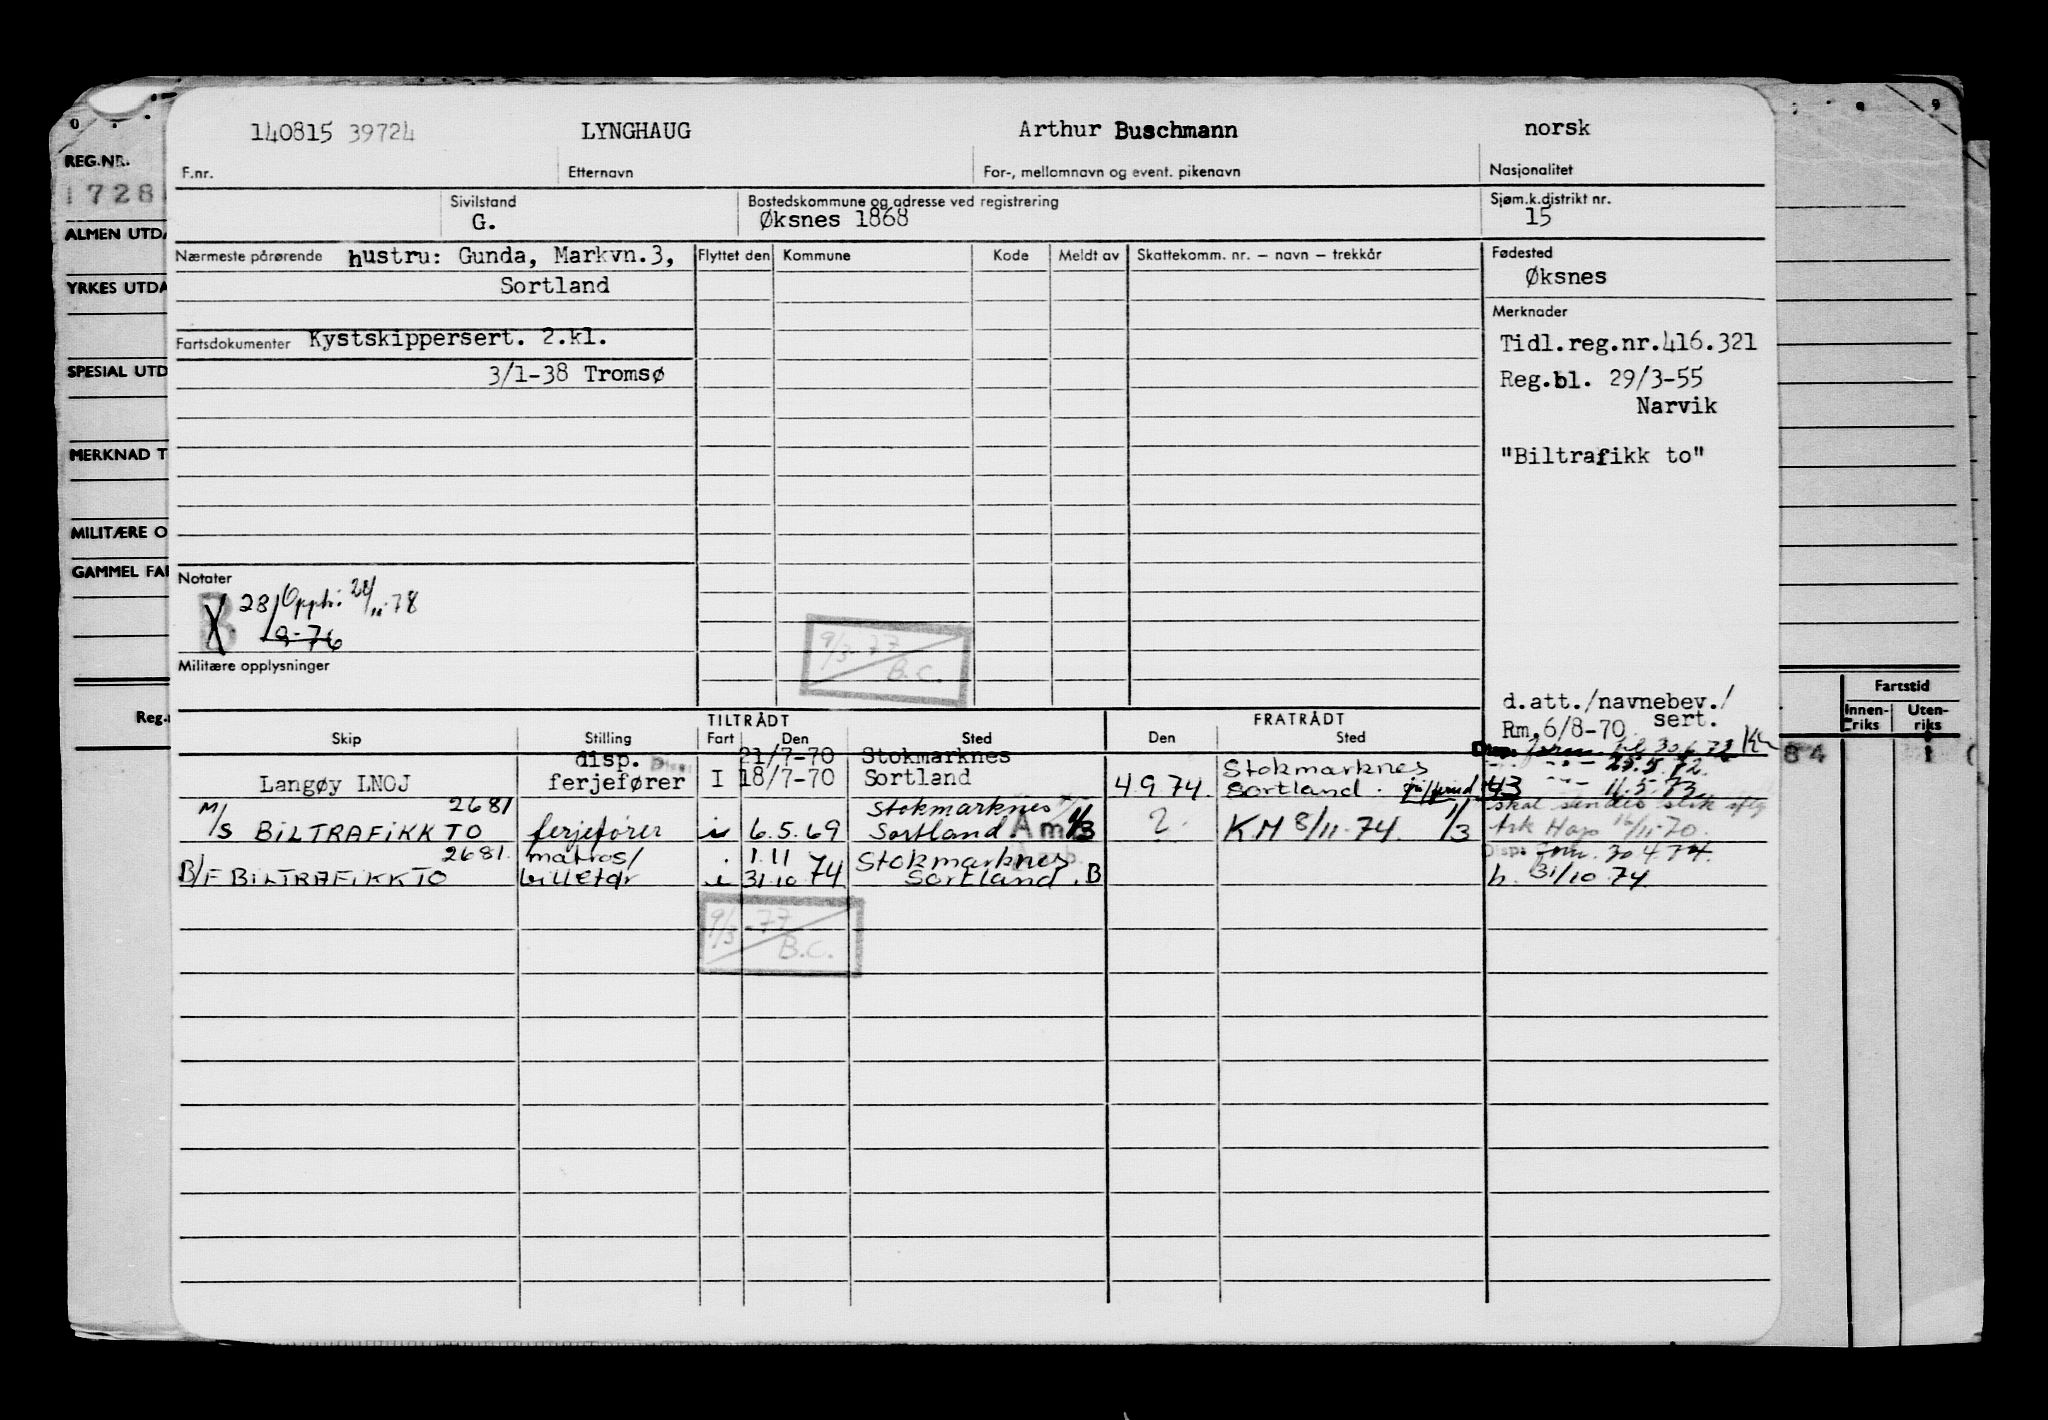 140815 39724 LYNGHAUG Arthur Buschmann norsk
F.nr. Etternavn For-, mellomnavn og event. pikenavn Nasjonalitet
REG.NR.
1728
Sivilstand Bostedskommune og adresse ved registrering Sjøm.k.distrikt nr.
G. Øksnes 1868 15
ALMEN UTDA
Nærmeste pårørende hustru: Gunda, Markvn.3, Flyttet den Kommune Kode Meldt av Skattekomm. nr. – navn – trekkår Fødested
Sortland Øksnes
YRKES UTDA
Merknader
Fartsdokumenter Kystskippersert. 2.kl. Tidl.reg.nr.416.321
3/1-38 Tromsø Reg.bl. 29/3-55
SPESIAL UTD
Narvik
MERKNAD T
"Biltrafikk to"
MILITÆRE O
GAMMEL FA
Notater
B 28/ 24/11-78
9-76
9/3-77
B.C.
Militære opplysninger
d.att./navnebev./
Rm. 6/8-70 sert.
Fartstid
Innen-riks Uten-riks
Reg.
TILTRÅDT FRATRÅDT
Skip Stilling Fart Den Sted Den Sted
disp. 21/7-70 Stokmarknes Stokmarknes
Langøy LNOJ ferjefører I 18/7-70 Sortland 4.9.74. Sortland.
84
25.5.72.
11.5.73
M/S BILTRAFIKK TO 2681 ferjefører i 6.5.69 Stokmarknes Sortland Am 1/3 ? KM 8/11-74. 1/3
16/11-70.
30.4.74.
B/F BILTRAFIKK TO 2681. matros/billetør i 1.11 31.10 74 Stokmarknes Sortland. B h. 31/10 74.
9/3-77
B.C.